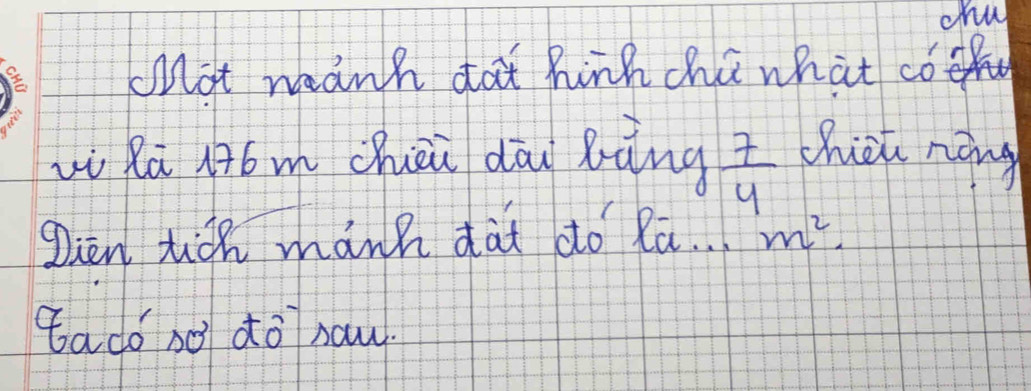 chu
Một mảnh đất hình chữ nhật có
vi là 176 m chiều dài bằng 7/4 chiều rộng
Diện tích mảnh đất đó là... m².
Ta có sơ đồ sau.
CHỮ